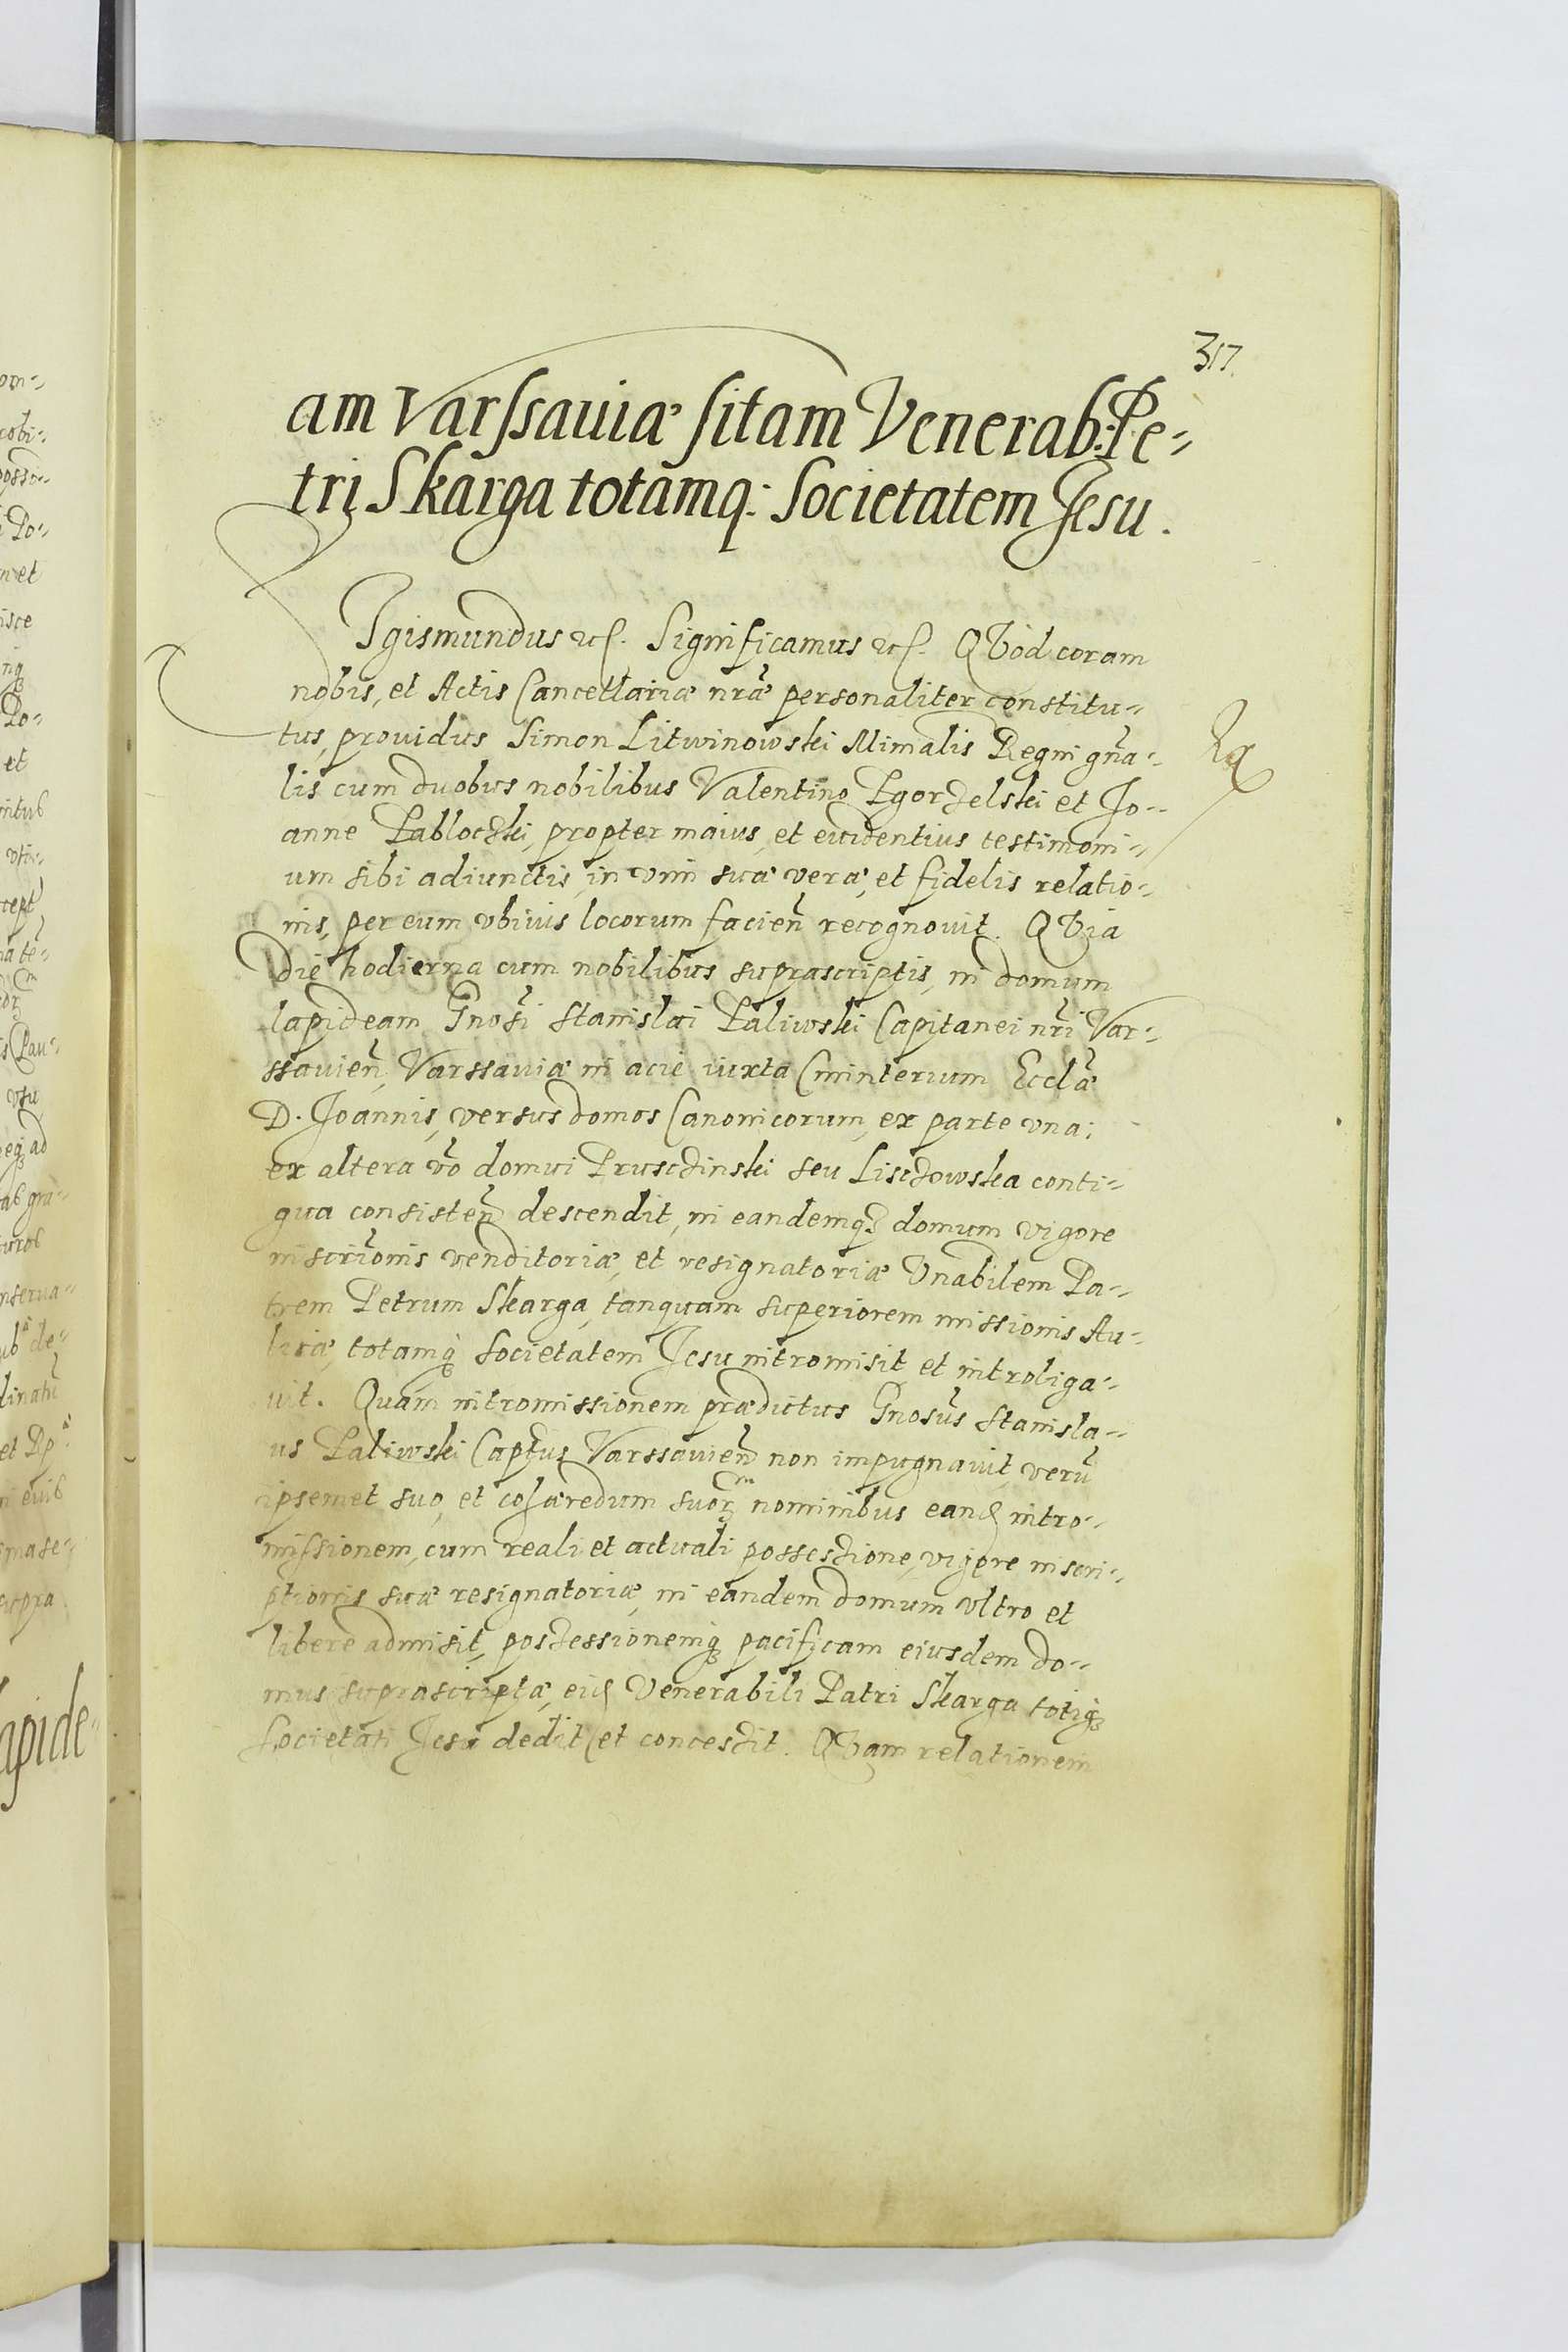 317.
am Varssauiæ sitam Venerab: Pe-
trj Skarga totamq: Societatem Jesu.
Sgismundus etc. Significamus etc. QVod coram
nobis, et Actis Cancellariæ nr̃æ personaliter constitu-
tus, prouidus Simon Litwinowski Mimalis Regni gñra-
lis cum duobus nobilibus Valentino Zgorzelski et Jo-
anne Zablocki, propter maius, et euidentius testimoni-
um sibi adiunctis, in vim suæ veræ, et fidelis relatio-
nis, per eum vbiuis locorum facień recognouit. QVia
die hodierna cum nobilibus suprascriptis, in domum
lapideam Gnosi Stanislai Zaliwski Capitanei nr̃i Var-
ssauień, Varssauiæ in acie iuxta Cminterium Ecclæ
D. Joannis, versus domos Canonicorum, ex parte vna;
ex altera vo domui Pruszinski seu Liszowska conti-
gua consisteñ descendit, in eandemq domum vigore
inscriõnis venditoriæ, et resignatoriæ Vnabilem Pa-
trem Petrum Skarga, tanquam superiorem missionis Au-
licæ, totamq Societatem Jesu intromisit et introliga-
uit. Quam intromissionem prædictus Gnosus Stanisla-
us Zaliwski Captus Varssauień non impugnauit, verũ
ipsemet suo, et cohæredum suor nominibus eand intro-
missionem, cum reali et actuali possessione, vigore inscri-
ptionis suæ resignatoriæ, in eandem domum vltro et
libere admisit, possessionemq pacificam eiusdem do-
mus suprascriptæ, eid Venerabili Patri Skarga totiq
Societati Jesu dedit et concessit. QVam relationem
lapide-